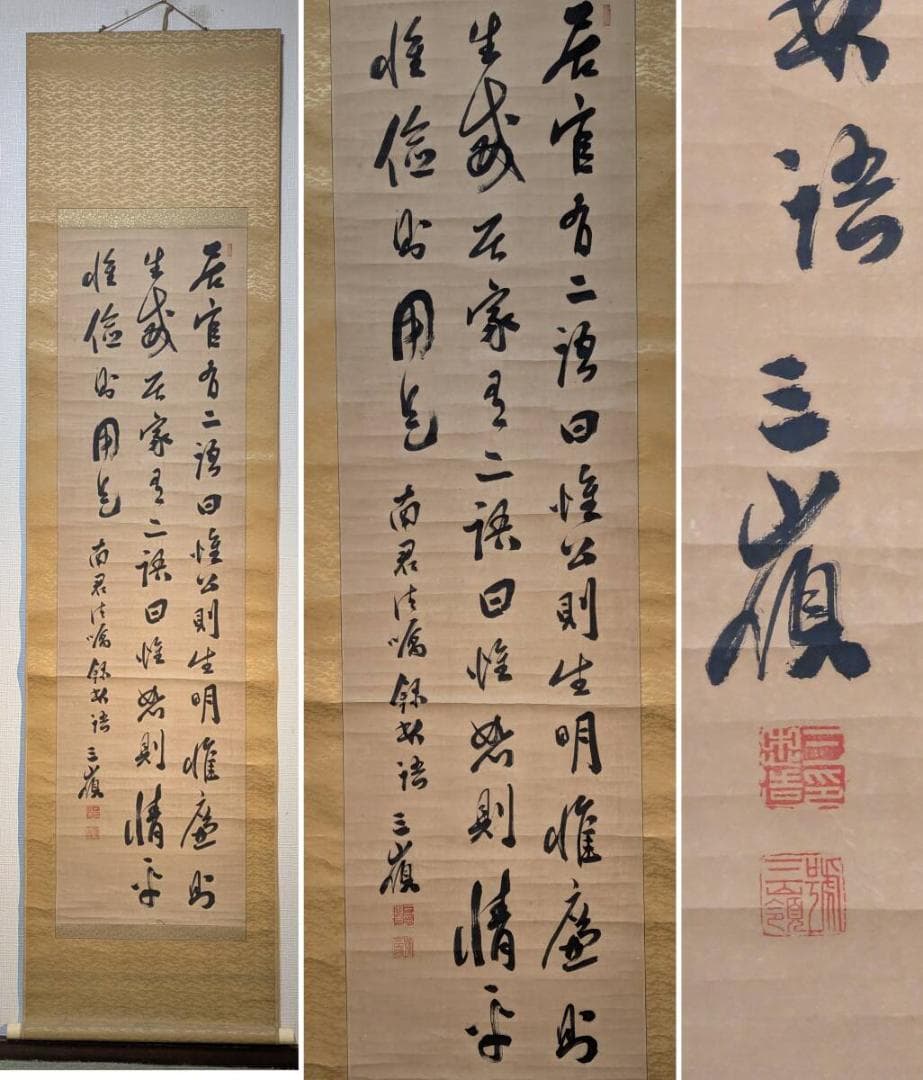 居官有二語曰惟公則生明惟廉則
生威居家有二語曰惟恕則情平
惟儉則用足 南君 嘱録 語 三嶺
號三嶺